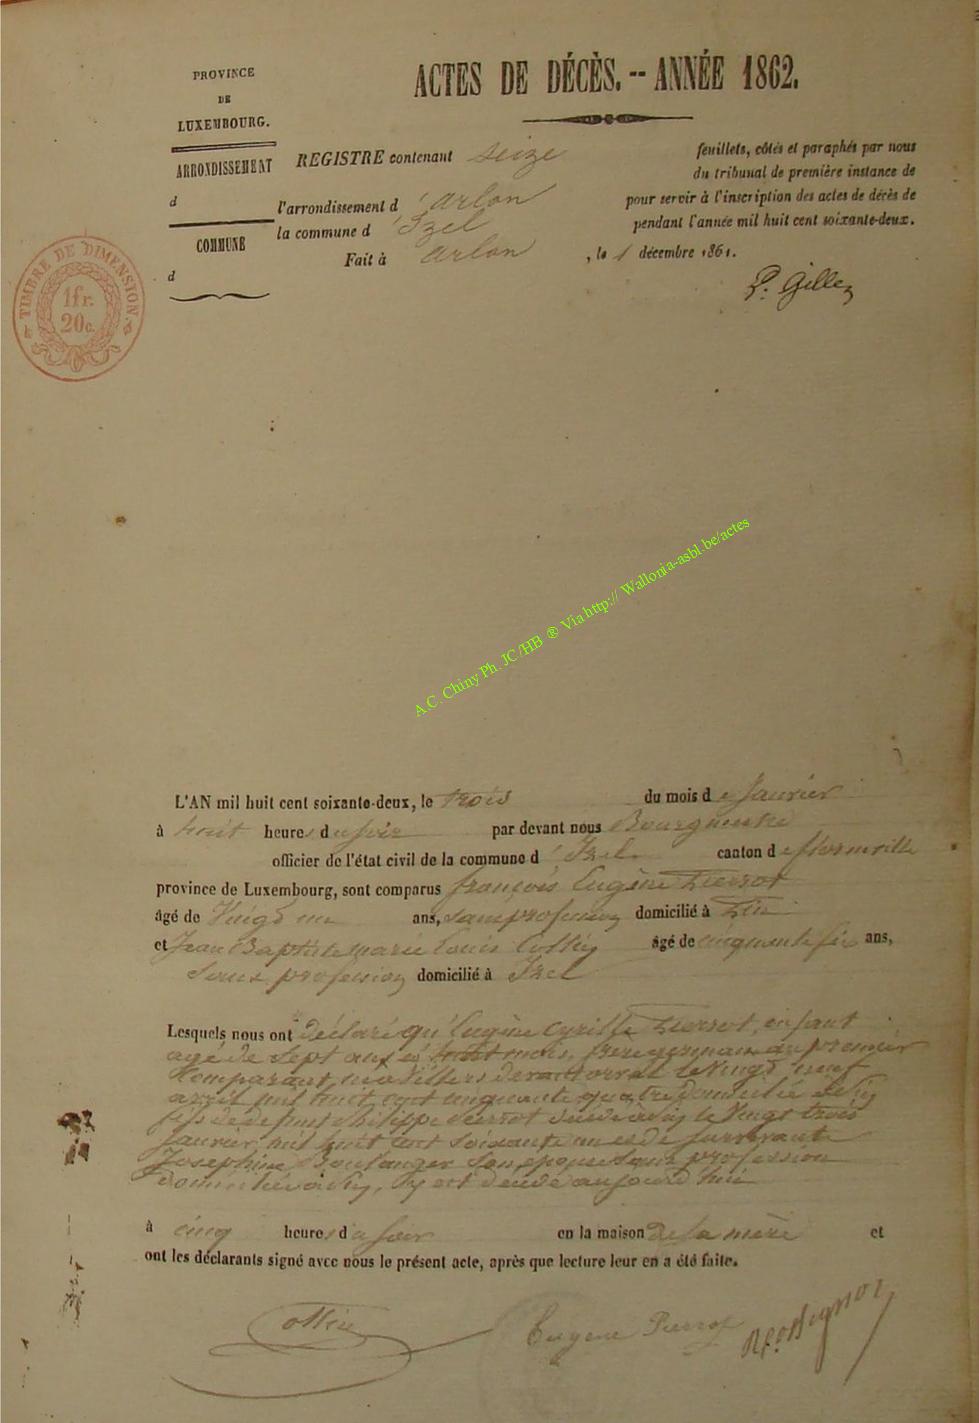 PROVINCE
DE
LUXEMBOURG.
ARRONDISSEMENT
d
COMMUNE
d
TIMBRE DE DIMENSION.
1fr.
20c.
ACTES DE DÉCÈS. -- ANNÉE 1862.
REGISTRE contenant seize feuillets, côtés et paraphés par nous
du tribunal de première instance de
l'arrondissement d'Arlon pour servir à l'inscription des actes de décès de
la commune d'Izel pendant l'année mil huit cent soixante-deux.
Fait à Arlon, le 1 décembre 1861.
P. Gilles
A.C. Chiny Ph. JC/HB ® Via http:// Wallonia-asbl.be/actes
L'AN mil huit cent soixante-deux, le trois du mois de Janvier
à huit heures du soir par devant nous Bourgmestre
officier de l'état civil de la commune d'Izel canton de florenville
province de Luxembourg, sont comparus françois Eugène Pierrot
âgé de Vingt un ans, sans profession domicilié à
et Jean Baptiste Marie Louis Collin âgé de cinquante six ans,
sans profession domicilié à Izel
Lesquels nous ont déclaré qu'Eugène Cyrille Pierrot, enfant
agé de sept ans et huit mois, frère germain du premier
comparant, né à Villers devant Orval le Vingt neuf
avril mil huit cent cinquante quatre domicilié
fils de defunt Philippe Pierrot décédé le Vingt trois
Janvier mil huit cent soixante un et de survivante
Josephine Boulanger son épouse sans profession
domiciliée, y est décédé aujourd'hui
à cinq heures du soir en la maison de sa mère et
ont les déclarants signé avec nous le présent acte, après que lecture leur en a été faite.
Collin Eugene Pierrot Rossignon